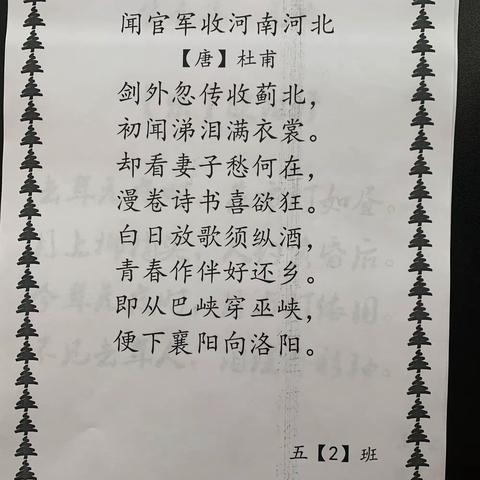 闻官军收河南河北
【唐】杜甫
剑外忽传收蓟北，
初闻涕泪满衣裳。
却看妻子愁何在，
漫卷诗书喜欲狂。
白日放歌须纵酒，
青春作伴好还乡。
即从巴峡穿巫峡，
便下襄阳向洛阳。
五【2】班